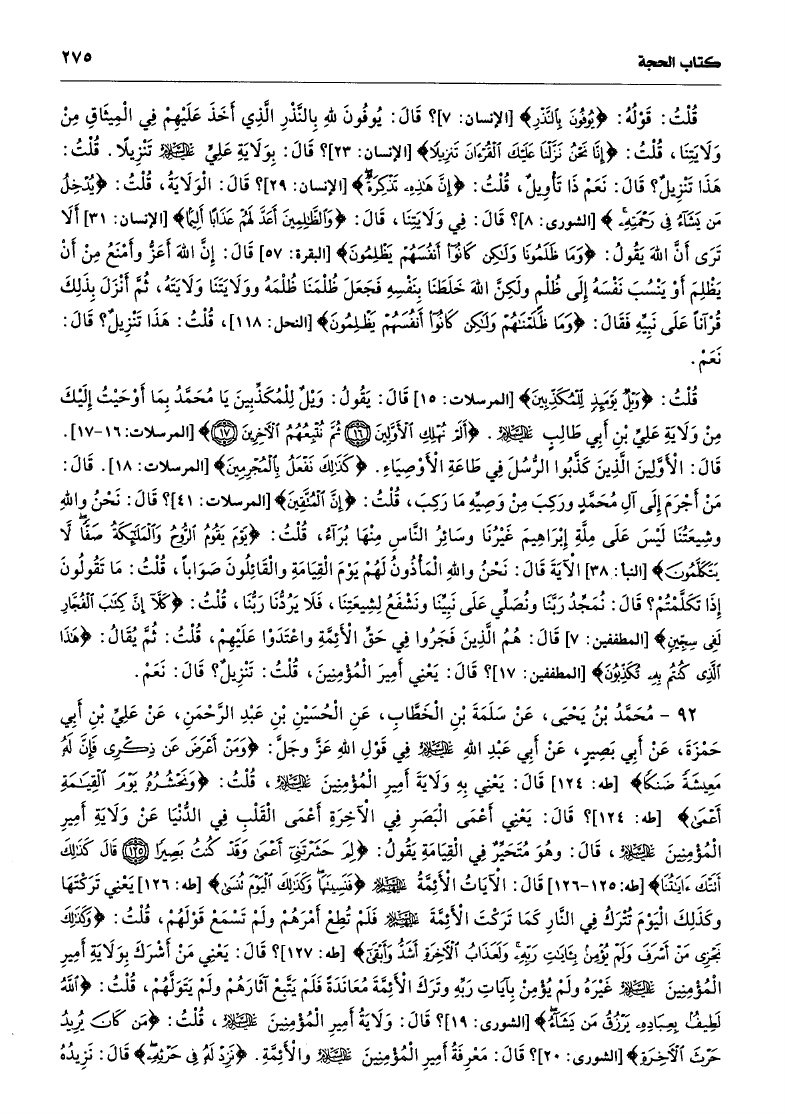 كتاب الحجة ٢٧٥
قُلْتُ: قَوْلُهُ: ﴿يُوفُونَ بِالنَّذْرِ﴾ [الإنسان: ٧]؟ قَالَ: يُوفُونَ للهِ بِالنَّذْرِ الَّذِي أَخَذَ عَلَيْهِمْ فِي الْمِيثَاقِ مِنْ
وَلَايَتِنَا، قُلْتُ: ﴿إِنَّا نَحْنُ نَزَّلْنَا عَلَيْكَ الْقُرْءَانَ تَنزِيلًا﴾ [الإنسان: ٢٣]؟ قَالَ: بِوَلَايَةِ عَلِيٍّ عليه السلام تَنْزِيلًا. قُلْتُ:
هَذَا تَنْزِيلٌ؟ قَالَ: نَعَمْ ذَا تَأْوِيلٌ، قُلْتُ: ﴿إِنَّ هَٰذِهِ تَذْكِرَةٌ﴾ [الإنسان: ٢٩]؟ قَالَ: الْوَلَايَةُ، قُلْتُ: ﴿يُدْخِلُ
مَن يَشَاءُ فِي رَحْمَتِهِ﴾ [الشورى: ٨]؟ قَالَ: فِي وَلَايَتِنَا، قَالَ: ﴿وَالظَّالِمِينَ أَعَدَّ لَهُمْ عَذَابًا أَلِيمًا﴾ [الإنسان: ٣١] أَلَا
تَرَى أَنَّ اللهَ يَقُولُ: ﴿وَمَا ظَلَمُونَا وَلَٰكِن كَانُوا أَنفُسَهُمْ يَظْلِمُونَ﴾ [البقرة: ٥٧] قَالَ: إِنَّ اللهَ أَعَزُّ وأَمْنَعُ مِنْ أَنْ
يَظْلِمَ أَوْ يَنْسُبَ نَفْسَهُ إِلَى ظُلْمٍ ولَكِنَّ اللهَ خَلَطَنَا بِنَفْسِهِ فَجَعَلَ ظُلْمَنَا ظُلْمَهُ ووَلَايَتَنَا وَلَايَتَهُ، ثُمَّ أَنْزَلَ بِذَلِكَ
قُرْآناً عَلَى نَبِيِّهِ فَقَالَ: ﴿وَمَا ظَلَمْنَاهُمْ وَلَٰكِن كَانُوا أَنفُسَهُمْ يَظْلِمُونَ﴾ [النحل: ١١٨]، قُلْتُ: هَذَا تَنْزِيلٌ؟ قَالَ:
نَعَمْ.
قُلْتُ: ﴿وَيْلٌ يَوْمَئِذٍ لِّلْمُكَذِّبِينَ﴾ [المرسلات: ١٥] قَالَ: يَقُولُ: وَيْلٌ لِلْمُكَذِّبِينَ يَا مُحَمَّدُ بِمَا أَوْحَيْتُ إِلَيْكَ
مِنْ وَلَايَةِ عَلِيِّ بْنِ أَبِي طَالِبٍ عليه السلام. ﴿أَلَمْ نُهْلِكِ الْأَوَّلِينَ ١٦ ثُمَّ نُتْبِعُهُمُ الْآخِرِينَ ١٧﴾ [المرسلات: ١٦-١٧].
قَالَ: الْأَوَّلِينَ الَّذِينَ كَذَّبُوا الرُّسُلَ فِي طَاعَةِ الْأَوْصِيَاءِ. ﴿كَذَٰلِكَ نَفْعَلُ بِالْمُجْرِمِينَ﴾ [المرسلات: ١٨]. قَالَ:
مَنْ أَجْرَمَ إِلَى آلِ مُحَمَّدٍ ورَكِبَ مِنْ وَصِيِّهِ مَا رَكِبَ، قُلْتُ: ﴿إِنَّ الْمُتَّقِينَ﴾ [المرسلات: ٤١]؟ قَالَ: نَحْنُ واللهِ
وشِيعَتُنَا لَيْسَ عَلَى مِلَّةِ إِبْرَاهِيمَ غَيْرُنَا وسَائِرُ النَّاسِ مِنْهَا بُرَآءُ، قُلْتُ: ﴿يَوْمَ يَقُومُ الرُّوحُ وَالْمَلَائِكَةُ صَفًّا لَّا
يَتَكَلَّمُونَ﴾ [النبأ: ٣٨] الْآيَةَ قَالَ: نَحْنُ واللهِ الْمَأْذُونُ لَهُمْ يَوْمَ الْقِيَامَةِ والْقَائِلُونَ صَوَاباً، قُلْتُ: مَا تَقُولُونَ
إِذَا تَكَلَّمْتُمْ؟ قَالَ: نُمَجِّدُ رَبَّنَا ونُصَلِّي عَلَى نَبِيِّنَا ونَشْفَعُ لِشِيعَتِنَا، فَلَا يَرُدُّنَا رَبُّنَا، قُلْتُ: ﴿كَلَّا إِنَّ كِتَابَ الْفُجَّارِ
لَفِي سِجِّينٍ﴾ [المطففين: ٧] قَالَ: هُمُ الَّذِينَ فَجَرُوا فِي حَقِّ الْأَئِمَّةِ واعْتَدَوْا عَلَيْهِمْ، قُلْتُ: ثُمَّ يُقَالُ: ﴿هَٰذَا
الَّذِي كُنتُم بِهِ تُكَذِّبُونَ﴾ [المطففين: ١٧]؟ قَالَ: يَعْنِي أَمِيرَ الْمُؤْمِنِينَ، قُلْتُ: تَنْزِيلٌ؟ قَالَ: نَعَمْ.
٩٢ - مُحَمَّدُ بْنُ يَحْيَى، عَنْ سَلَمَةَ بْنِ الْخَطَّابِ، عَنِ الْحُسَيْنِ بْنِ عَبْدِ الرَّحْمَنِ، عَنْ عَلِيِّ بْنِ أَبِي
حَمْزَةَ، عَنْ أَبِي بَصِيرٍ، عَنْ أَبِي عَبْدِ اللهِ عليه السلام فِي قَوْلِ اللهِ عَزَّ وجَلَّ: ﴿وَمَنْ أَعْرَضَ عَن ذِكْرِي فَإِنَّ لَهُ
مَعِيشَةً ضَنكًا﴾ [طه: ١٢٤] قَالَ: يَعْنِي بِهِ وَلَايَةَ أَمِيرِ الْمُؤْمِنِينَ عليه السلام، قُلْتُ: ﴿وَنَحْشُرُهُ يَوْمَ الْقِيَامَةِ
أَعْمَىٰ﴾ [طه: ١٢٤]؟ قَالَ: يَعْنِي أَعْمَى الْبَصَرِ فِي الْآخِرَةِ أَعْمَى الْقَلْبِ فِي الدُّنْيَا عَنْ وَلَايَةِ أَمِيرِ
الْمُؤْمِنِينَ عليه السلام، قَالَ: وهُوَ مُتَحَيِّرٌ فِي الْقِيَامَةِ يَقُولُ: ﴿لِمَ حَشَرْتَنِي أَعْمَىٰ وَقَدْ كُنتُ بَصِيرًا ١٢٥ قَالَ كَذَٰلِكَ
أَتَتْكَ ءَايَاتُنَا﴾ [طه: ١٢٥-١٢٦] قَالَ: الْآيَاتُ الْأَئِمَّةُ عليهم السلام ﴿فَنَسِيتَهَا وَكَذَٰلِكَ الْيَوْمَ تُنسَىٰ﴾ [طه: ١٢٦] يَعْنِي تَرَكْتَهَا
وكَذَلِكَ الْيَوْمَ تُتْرَكُ فِي النَّارِ كَمَا تَرَكْتَ الْأَئِمَّةَ عليهم السلام فَلَمْ تُطِعْ أَمْرَهُمْ ولَمْ تَسْمَعْ قَوْلَهُمْ، قُلْتُ: ﴿وَكَذَٰلِكَ
نَجْزِي مَنْ أَسْرَفَ وَلَمْ يُؤْمِن بِآيَاتِ رَبِّهِ وَلَعَذَابُ الْآخِرَةِ أَشَدُّ وَأَبْقَىٰ﴾ [طه: ١٢٧]؟ قَالَ: يَعْنِي مَنْ أَشْرَكَ بِوَلَايَةِ أَمِيرِ
الْمُؤْمِنِينَ عليه السلام غَيْرَهُ ولَمْ يُؤْمِنْ بِآيَاتِ رَبِّهِ وتَرَكَ الْأَئِمَّةَ مُعَانَدَةً فَلَمْ يَتَّبِعْ آثَارَهُمْ ولَمْ يَتَوَلَّهُمْ، قُلْتُ: ﴿اللَّهُ
لَطِيفٌ بِعِبَادِهِ يَرْزُقُ مَن يَشَاءُ﴾ [الشورى: ١٩]؟ قَالَ: وَلَايَةُ أَمِيرِ الْمُؤْمِنِينَ عليه السلام، قُلْتُ: ﴿مَن كَانَ يُرِيدُ
حَرْثَ الْآخِرَةِ﴾ [الشورى: ٢٠]؟ قَالَ: مَعْرِفَةُ أَمِيرِ الْمُؤْمِنِينَ عليه السلام والْأَئِمَّةِ. ﴿نَزِدْ لَهُ فِي حَرْثِهِ﴾ قَالَ: نَزِيدُهُ